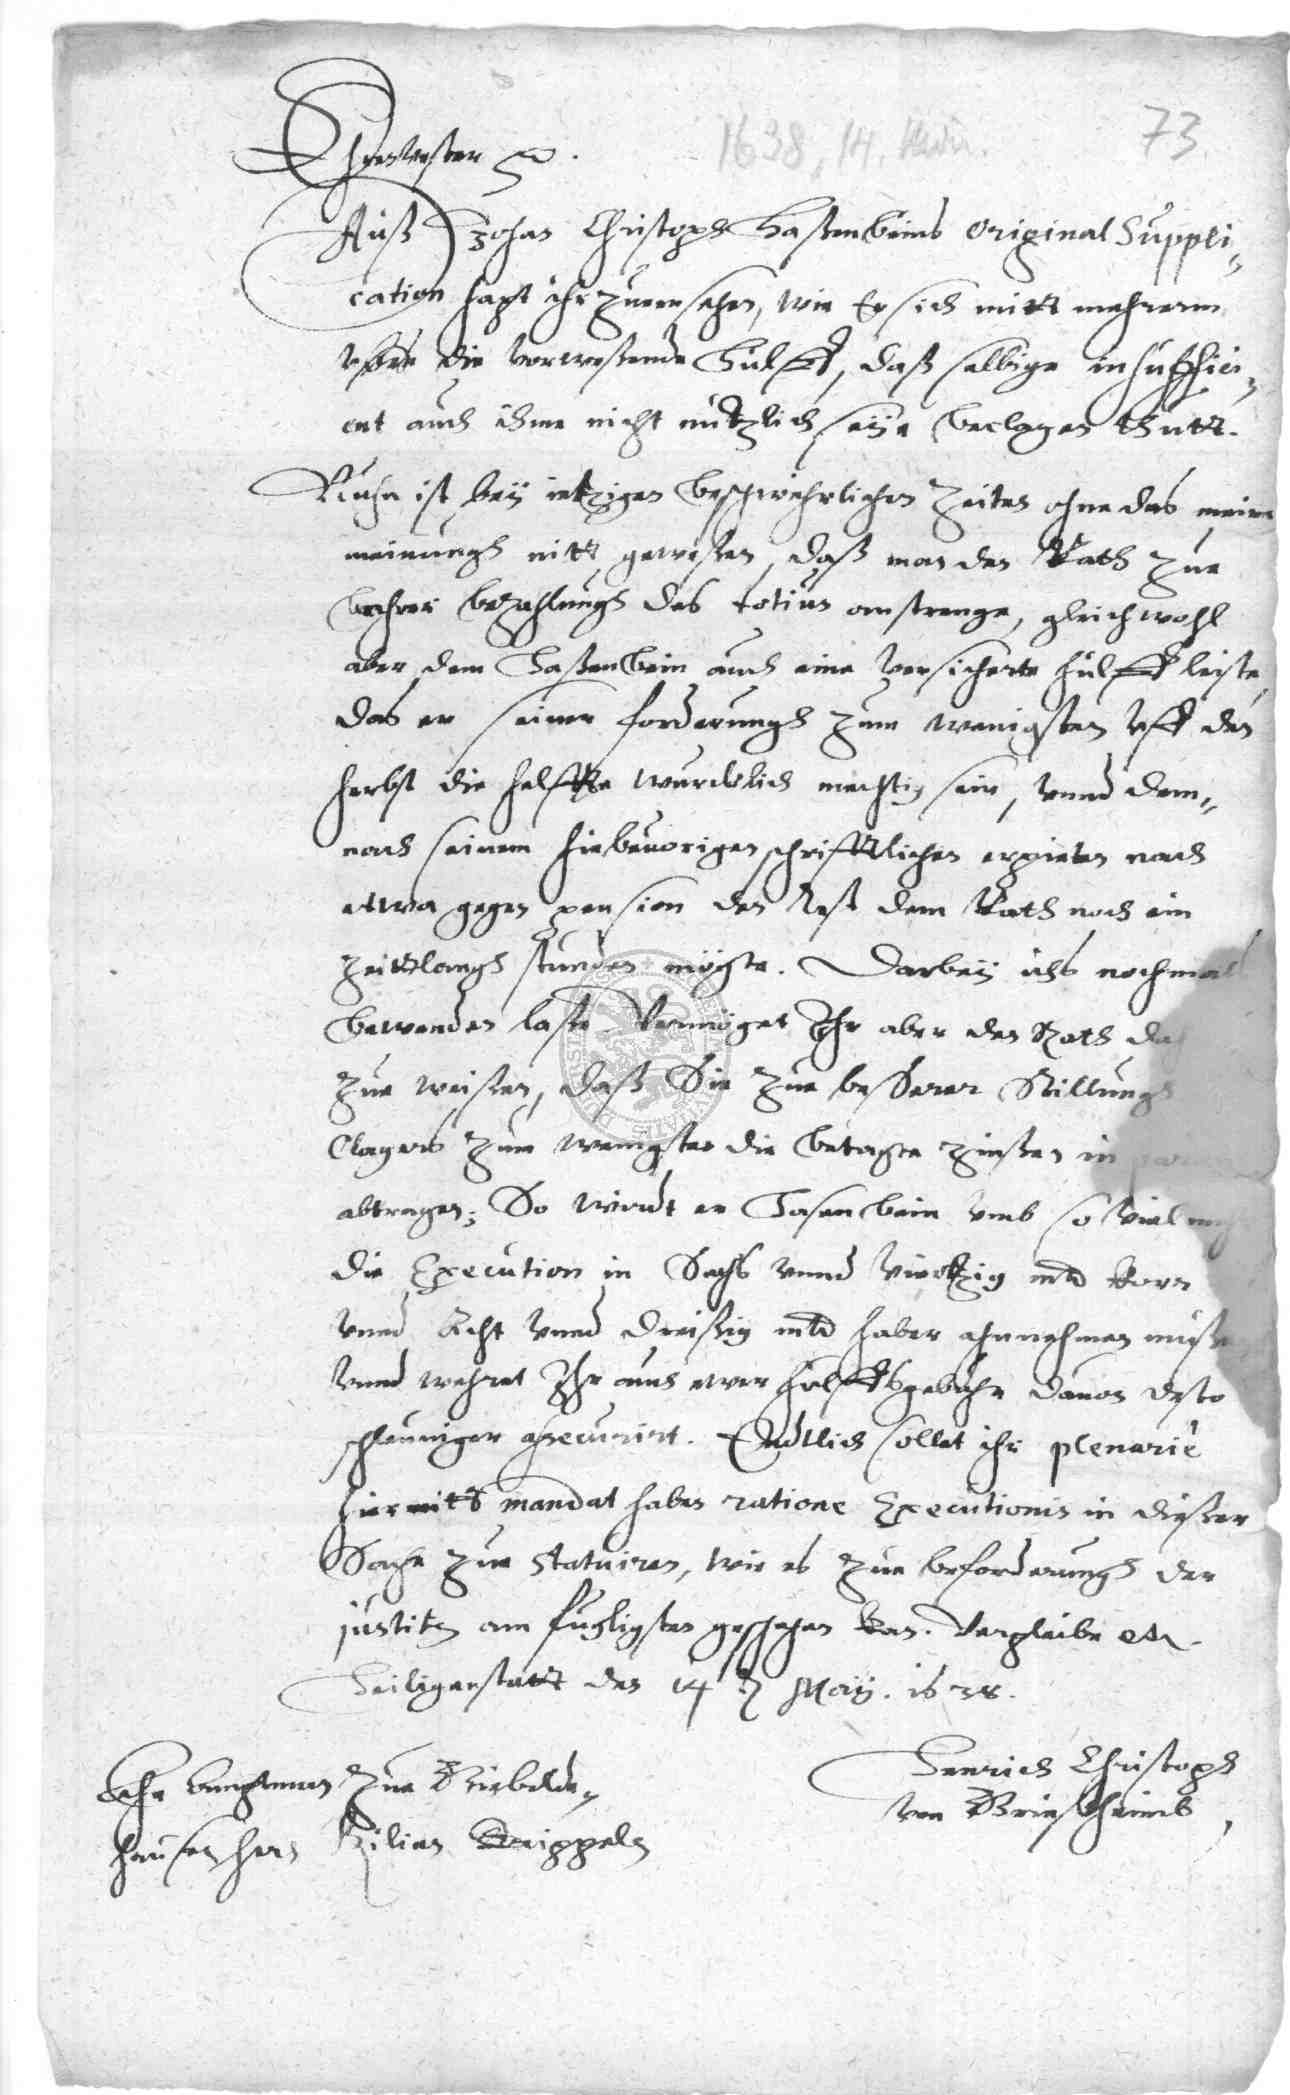 1638, 14. Maii.
73
Ehrnvester etc.
Auß Johan Christoph Haßenbeins Original Suppli-
cation hapt ihr zuversehen, wie Er sich mitt mehrerm
uber die vorweßende Hülff, daß selbige insuffici-
ent auch ihme nicht nützlich seye beclagen thutt.
Nuhn ist bey ietzigen beschwehrlichen Zeiten ohne das meine
meinungh nitt geweßen, daß man den Rath zue
bahrer bezahlungh des totius anstrenge, gleichwohl
aber dem Haßenbein auch eine versicherte hülff leiste
das er seiner forderungh zum wenigsten uff den
herbst die helffte wurcklich mechtig sein, unnd dem-
nach seinem hiebevorigen schrifftlichen erpieten nach
etwa gegen pension den Rest dem Rath noch ein
zeittlangh stunden mögte. Darbey ichs nochmals
bewenden laße Vermöget Ihr aber den Rath
zue weißen, daß Sie zue beßerer Stillungh
Clagers zum wenigsten die betagte Zinßen in
abtragen; So wirdt er Hasenbein umb so viel mehr
die Execution in Sechs unnd viertzig mltr korn
unnd Acht unnd dreißig mltr haber ahnnehmen müßen
unnd wehret Ihr auch ewer hülffsgebühr davon desto
schleuniger assecurirt. Endtlich sollet ihr plenariè
hiermitt mandat haben ratione Executionis in dießer
Sache zue statuiren, wie es zue beforderungh der
justitz am fugligsten geschehen kan. Vergleibe etc.
Heiligenstatt den 14 May. 1638.
Henrich Christoph
von Griesheimb
zue Giebelde-
haußen hern Kilian Krippeln